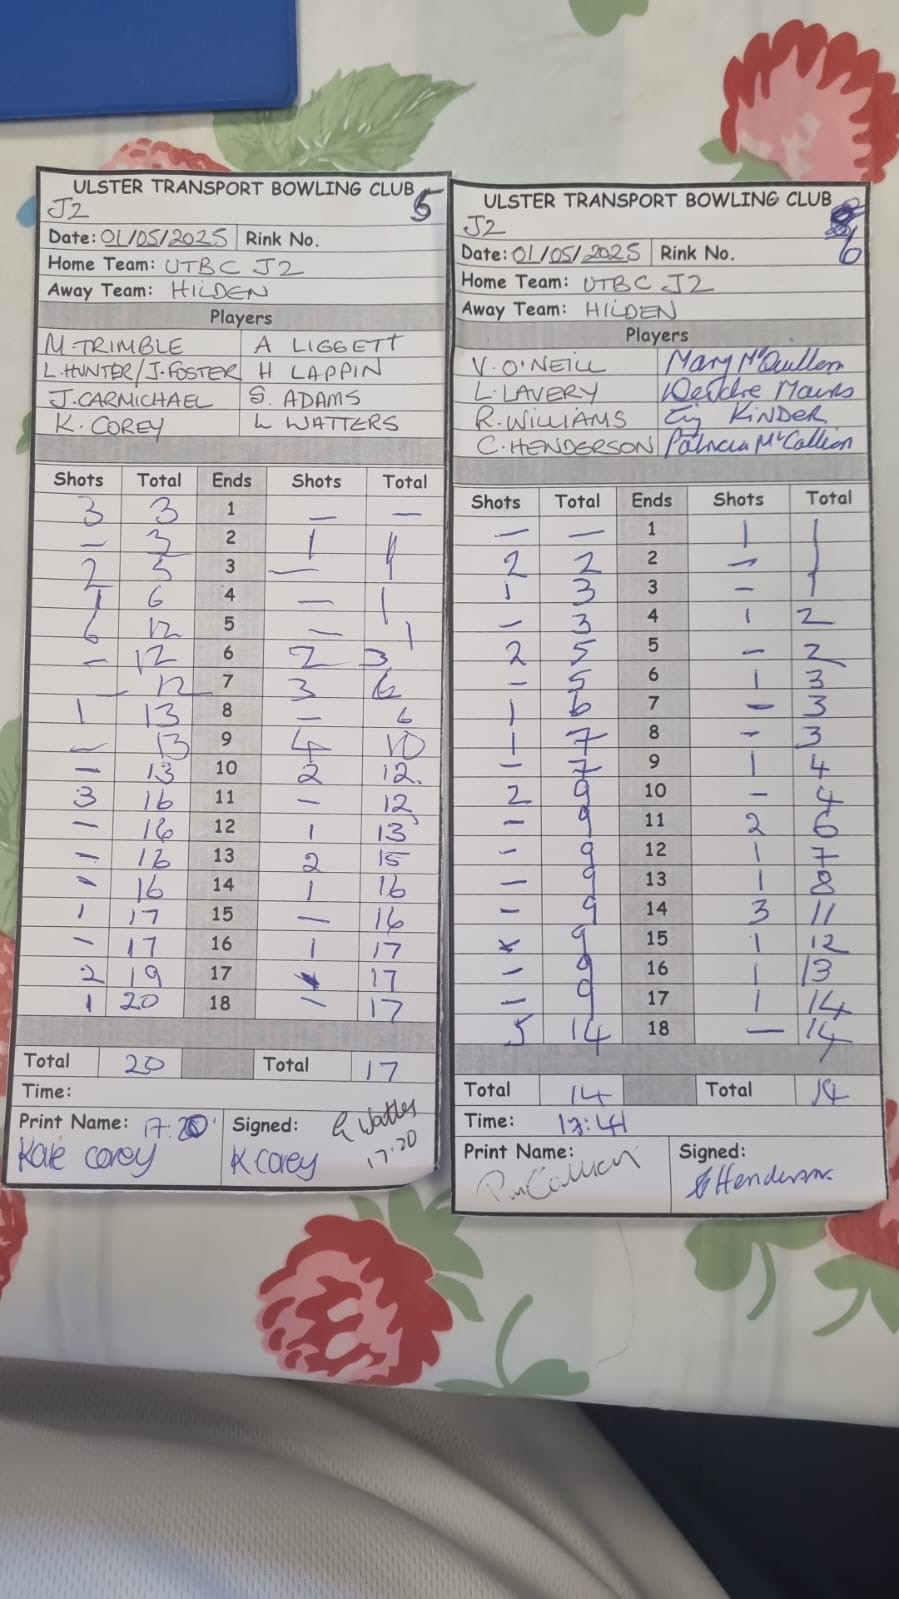 ULSTER TRANSPORT BOWLING CLUB
J2 5
Date: 01/05/2025 Rink No.
Home Team: UTBC J2
Away Team: HILDEN
Players
M. TRIMBLE A LIGGETT
L. HUNTER/J. FOSTER H LAPPIN
J. CARMICHAEL S. ADAMS
K. COREY L WATTERS
Shots Total Ends Shots Total
3 3 1 — —
— 3 2 1 1
2 5 3 — 1
1 6 4 — 1
6 12 5 — 1
— 12 6 2 3
— 12 7 3 6
1 13 8 — 6
— 13 9 4 10
— 13 10 2 12.
3 16 11 — 12
— 16 12 1 13
— 16 13 2 15
- 16 14 1 16
1 17 15 — 16
- 17 16 1 17
2 19 17 17
1 20 18 — 17
Total 20 Total 17
Time:
Print Name: 17:20 Signed: Watters
Kate Corey K Corey 17:20
ULSTER TRANSPORT BOWLING CLUB
J2 6
Date: 01/05/2025 Rink No.
Home Team: UTBC J2
Away Team: HILDEN
Players
V. O'NEILL Mary McQuillan
L. LAVERY Deirdre
R. WILLIAMS KINDER
C. HENDERSON Patricia McCallion
Shots Total Ends Shots Total
— — 1 1 1
2 2 2 — 1
1 3 3 — 1
- 3 4 1 2
2 5 5 — 2
- 5 6 1 3
1 6 7 — 3
1 7 8 - 3
— 7 9 1 4
2 9 10 — 4
- 9 11 2 6
- 9 12 1 7
— 9 13 1 8
- 9 14 3 11
9 15 1 12
— 9 16 1 13
— 9 17 1 14
5 14 18 — 14
Total 14 Total 14
Time: 17:41
Print Name: Signed:
Henderson